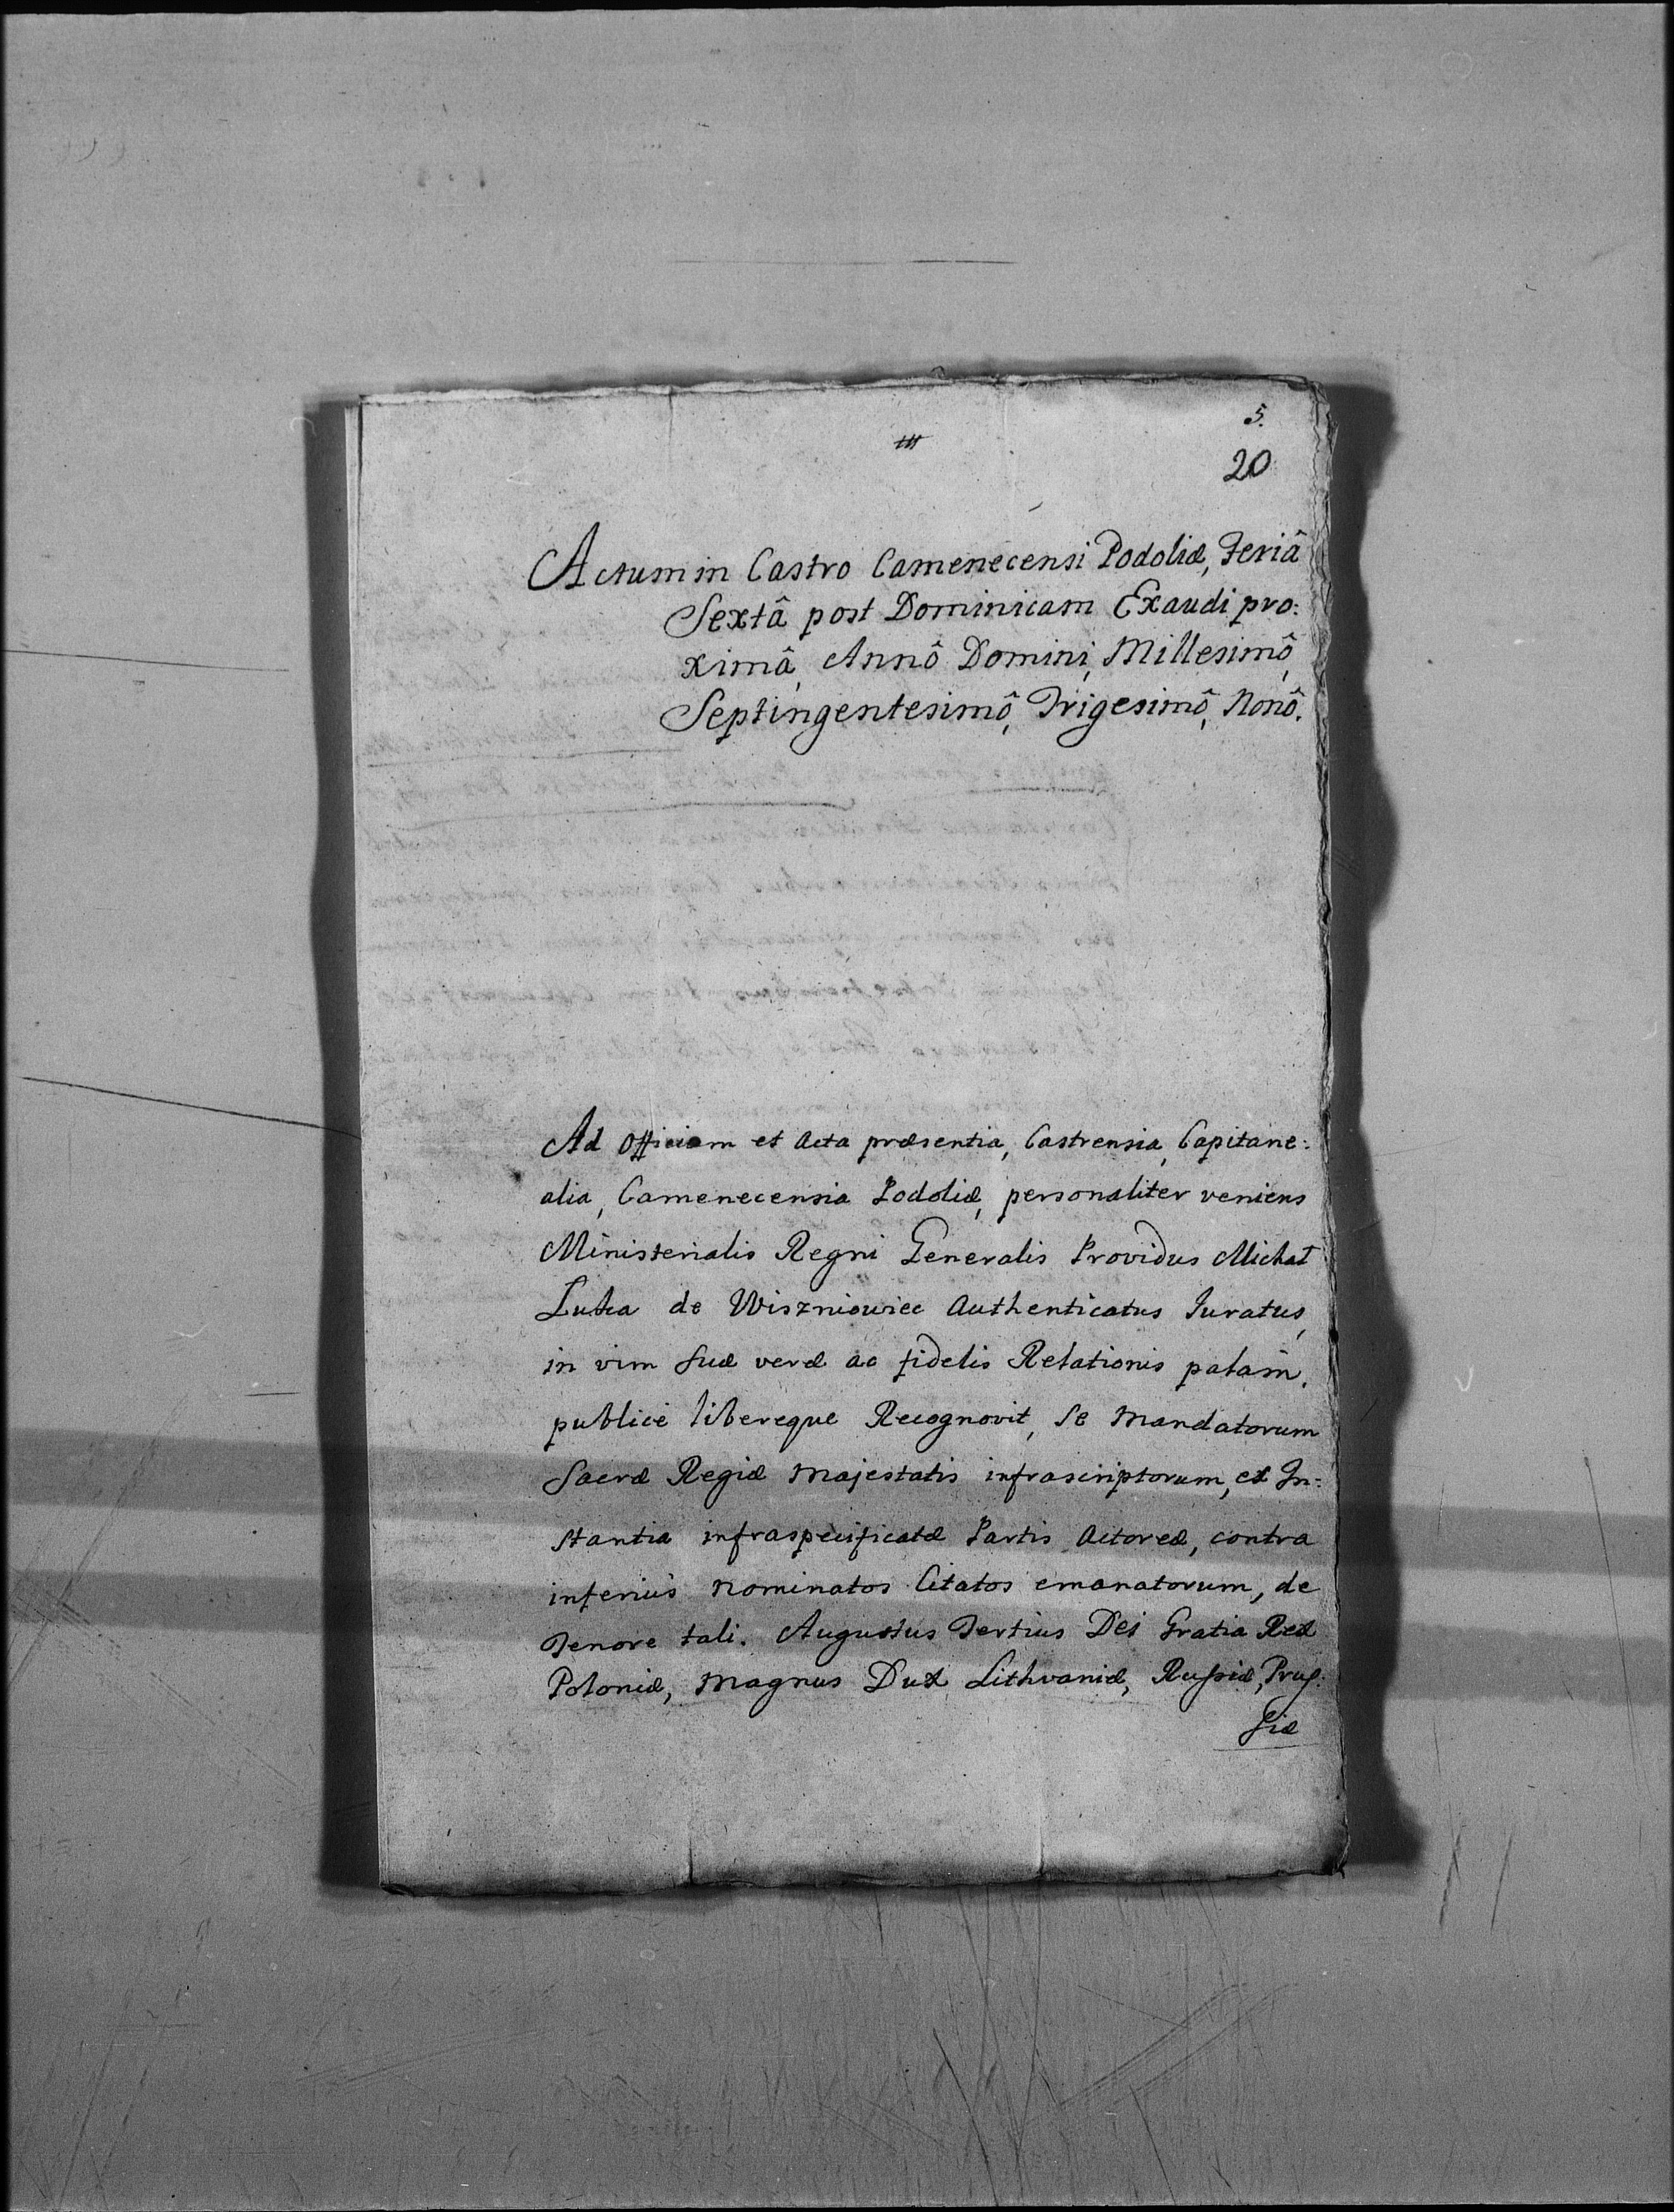 5.
20
Actum in Castro Camenecensi Podoliæ, Feriâ
Sextâ post Dominicam Exaudi pro:
ximâ, Annô Domini, Millesimô,
Septingentesimô, Trigesimô, Nonô.
Ad Officium et Acta præsentia, Castrensia, Capitane:
alia, Camenecensia Podoliæ, personaliter veniens
Ministerialis Regni Generalis Providus Michał
de Wiszniowiec Authenticatus Juratus,
in vim suæ veræ ac fidelis Relationis palam,
publicè libereque Recognovit, se Mandatorum
Sacræ Regiæ Majestatis infrascriptorum, ex In:
stantia infraspecificatæ Partis Actoreæ, contra
inferiùs nominatos Citatos emanatorum, de
Tenore tali. Augustus Tertius Dei Gratia Rex
Poloniæ, Magnus Dux Lithvaniæ, Russiæ, Prus:
siæ